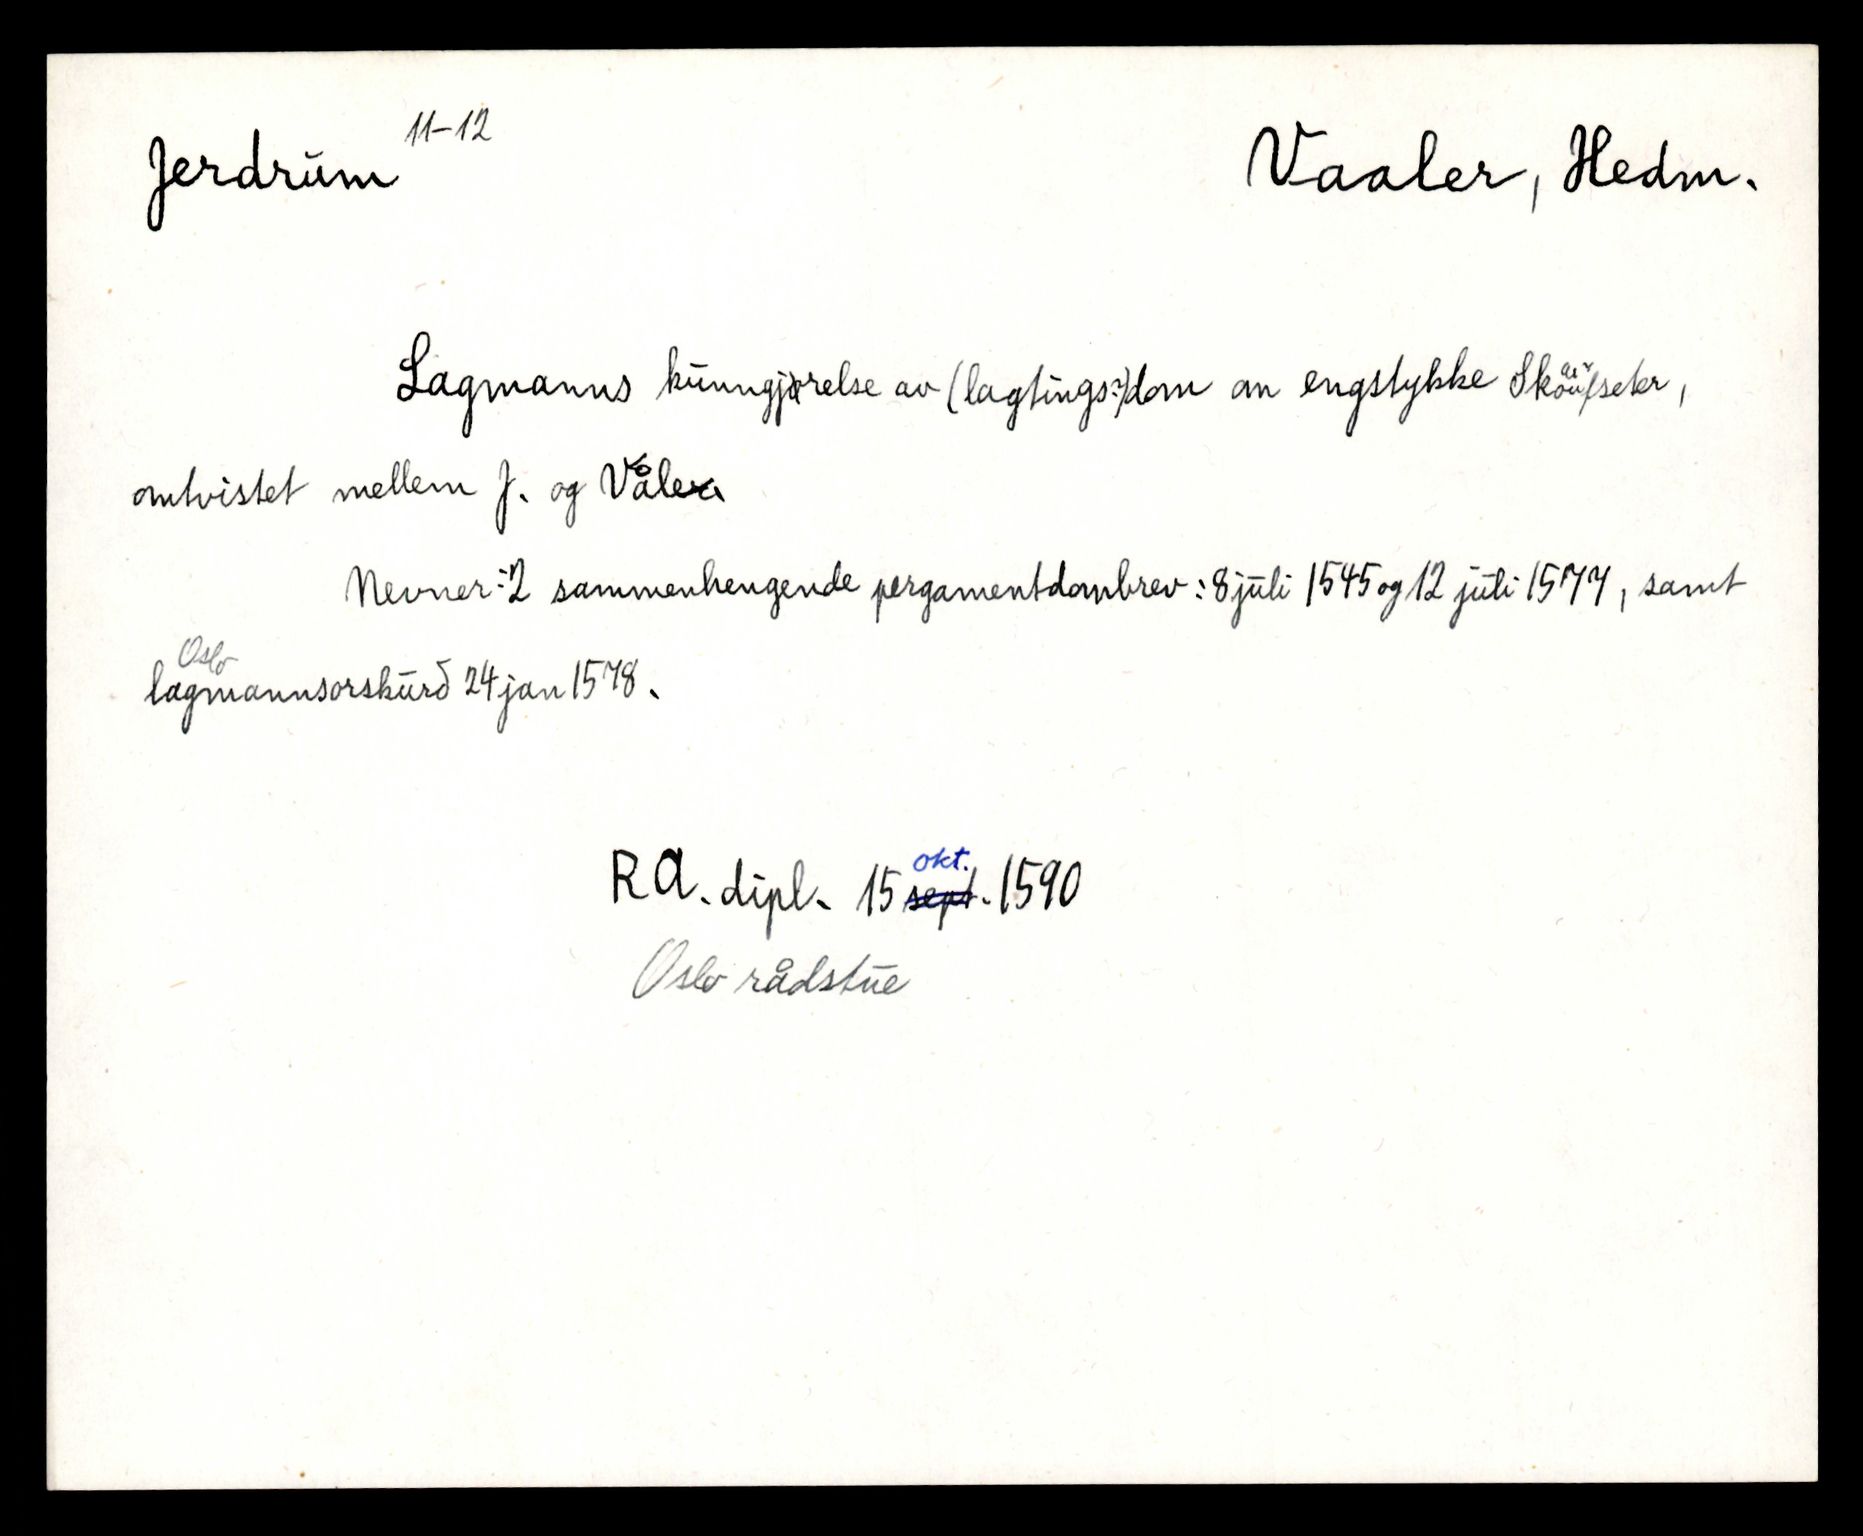 Jerdrum 11-12 Vaaler, Hedm.
Lagmanns kunngjørelse av (lagtings?)dom om engstykke
omtvistet mellem J. og Våler.
Nevner: 2 sammenhengende pergamentdombrev: 8 juli 1545 og 12 juli 1577, samt
Oslo
lagmannsorskurð 24 jan 1578.
okt.
RA. dipl. 15 sept. 1590
Oslo rådstue